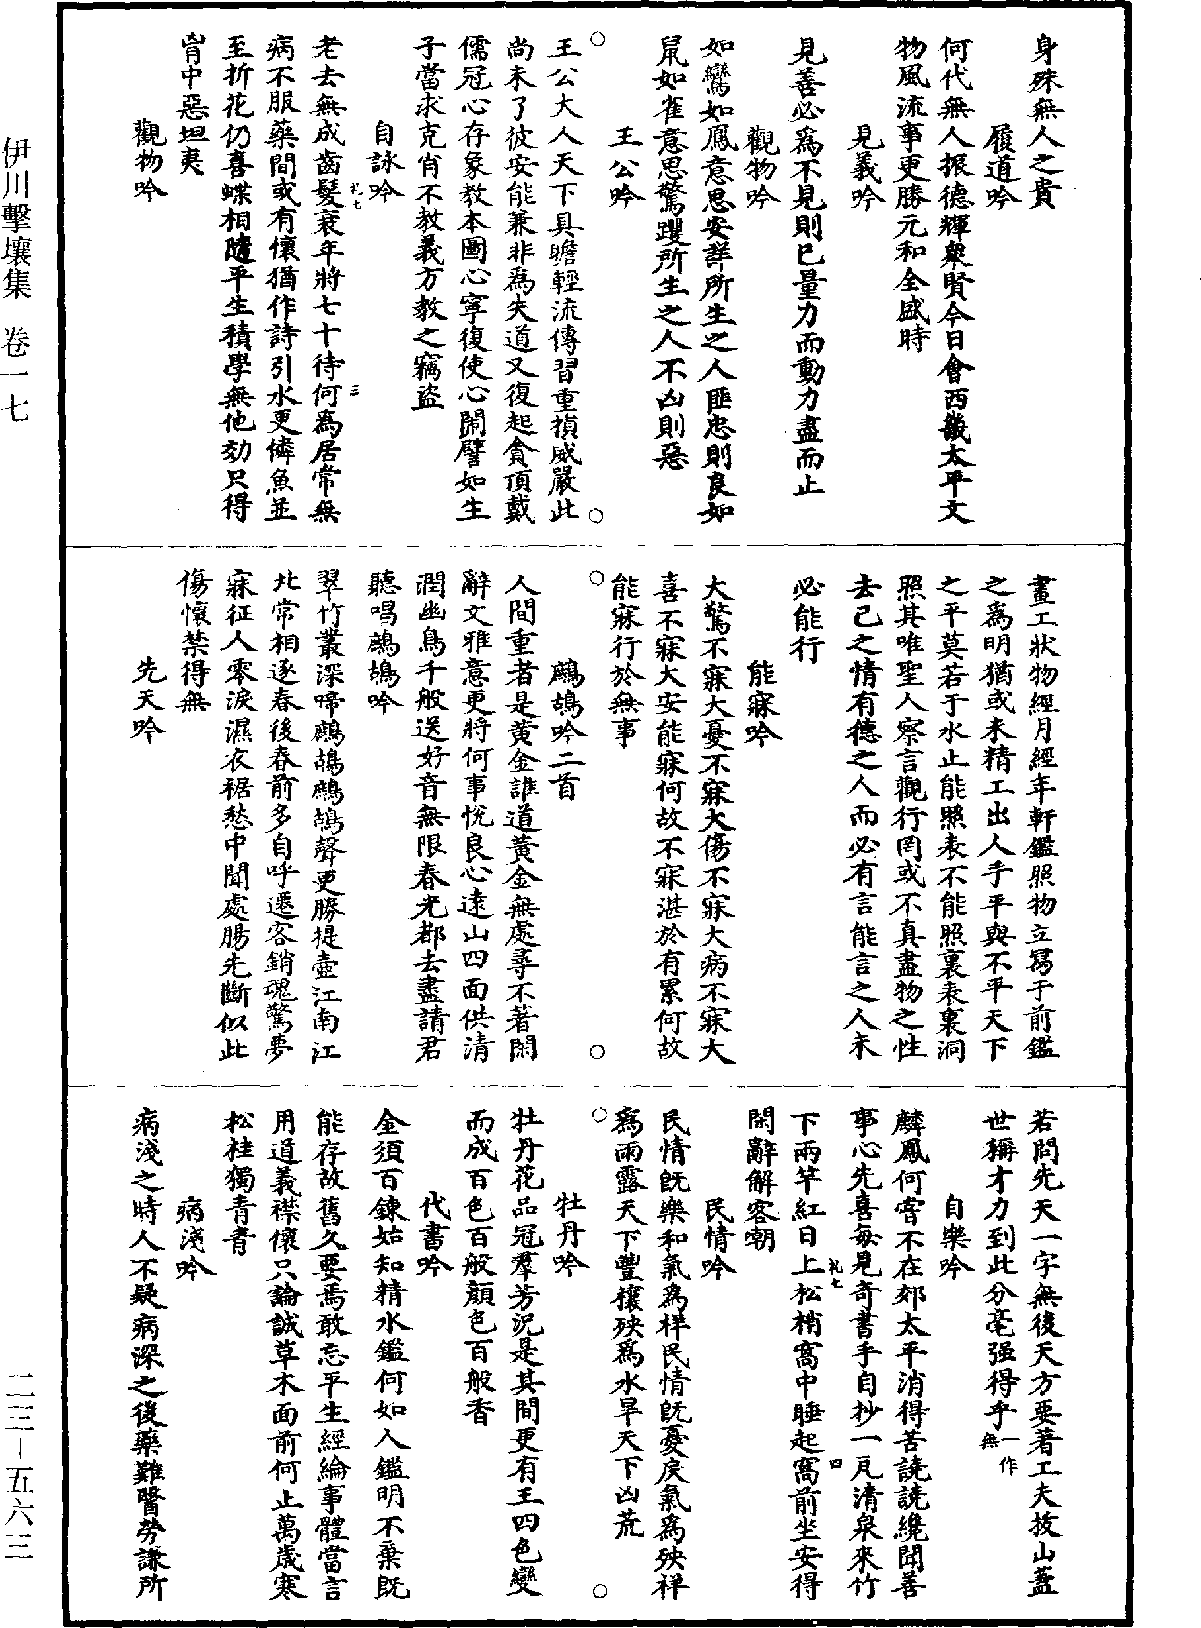 身殊無人之貴
履道吟
何代無人振德輝衆賢今日會西畿太平文
物風流事更勝元和全盛時
見義吟
見善必爲不見則已量力而動力盡而止
觀物吟
如鸞如鳳意思安詳所生之人匪忠則良如
鼠如雀意思驚躩所生之人不凶則惡
王公吟
王公大人天下具瞻輕流傳習重損威嚴此
尚未了彼安能兼非爲失道又復起貪頂戴
儒冠心存象教本圖心寧復使心鬧譬如生
子當求克肖不教義方教之竊盜
自詠吟
老去無成齒髮衰年將七十待何爲居常無
病不服藥間或有懷猶作詩引水更憐魚並
至折花仍喜蝶相隨平生積學無他効只得
胷中惡坦夷
觀物吟
畫工狀物經月經年軒鑑照物立寫于前鑑
之爲明猶或未精工出人手平與不平天下
之平莫若于水止能照表不能照裏表裏洞
照其唯聖人察言觀行罔或不真盡物之性
去己之情有德之人而必有言能言之人未
必能行
能寐吟
大驚不寐大憂不寐大傷不寐大病不寐大
喜不寐大安能寐何故不寐湛於有累何故
能寐行於無事
鷓鴣吟二首
人間重者是黃金誰道黃金無處尋不著閑
辭文雅意更將何事悅良心遠山四面供清
潤幽鳥千般送好音無限春光都去盡請君
聽唱鷓鴣吟
翠竹叢深啼鷓鴣鷓鴣聲更勝提壺江南江
北常相逐春後春前多自呼遷客銷魂驚夢
寐征人零淚濕衣裾愁中聞處腸先斷似此
傷懷禁得無
先天吟
若問先天一字無後天方要著工夫拔山蓋
世稱才力到此分毫强得乎一作無
自樂吟
麟鳳何嘗不在郊太平消得苦譊譊纔聞善
事心先喜每見奇書手自抄一瓦清泉來竹
下兩竿紅日上松梢窩中睡起窩前坐安得
閑辭解客嘲
民情吟
民情旣樂和氣爲祥民情旣憂戾氣爲殃祥
爲雨露天下豐穰殃爲水旱天下凶荒
牡丹吟
牡丹花品冠羣芳況是其間更有王四色變
而成百色百般顏色百般香
代書吟
金須百鍊姑知精水鑑何如人鑑明不棄旣
能存故舊久要焉敢忘平生經綸事體當言
用道義襟懷只論誠草木面前何止萬歲寒
松桂獨青青
病淺吟
病淺之時人不疑病深之後藥難醫勞謙所
伊川擊壤集 卷一七
二三—五六三
禮七
三
禮七
四